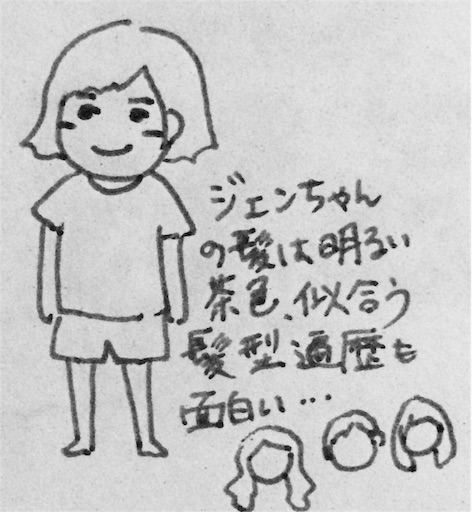 ジェンちゃん
の髪は明るい
茶色、似合う
髪型遍歴も
面白い…